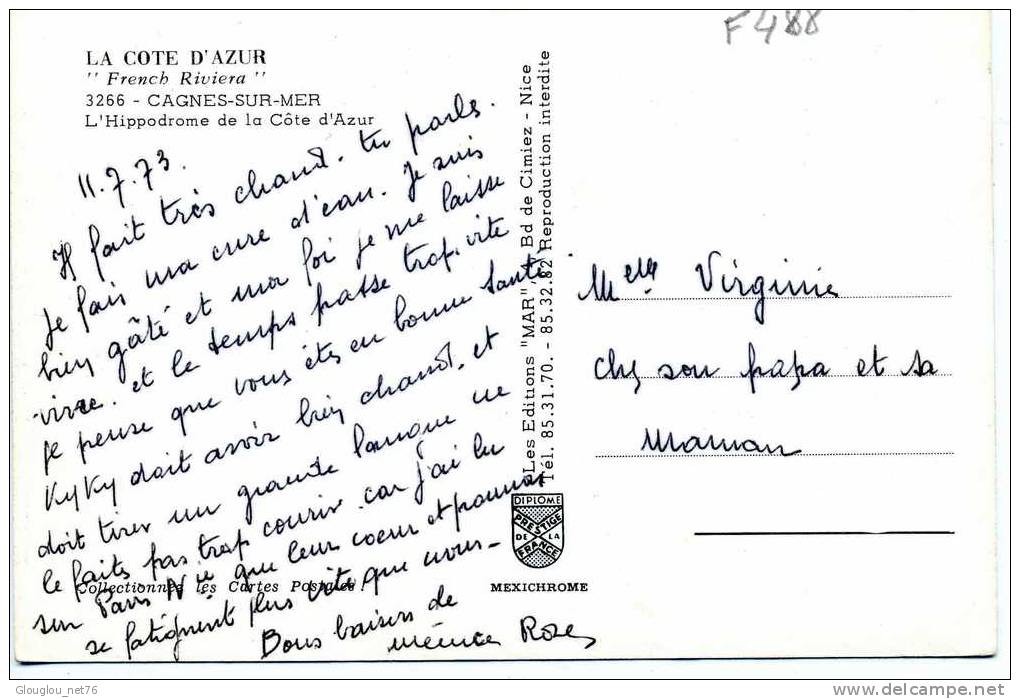 F488
LA COTE D'AZUR
" French Riviera "
3266 - CAGNES-SUR-MER
L'Hippodrome de la Côte d'Azur
11.7.73.
Il fait très chaud. tu parles.
Je fais ma cure d'eau. Je suis
bien gâté et ma foi je me laisse
vivre. et le temps passe trop vite
Je pense que vous êtes en bonne santé
KyKy doit avoir bien chaud. et
doit tirer un grande langue ne
le faits pas trop courir. car j'ai lu
sur Paris N que leur coeur et poumon
se fatiguent plus vite que nous-
Bons baisers de
mémée Rose
Collectionnez les Cartes Postales !
Les Editions "MAR", Bd de Cimiez - Nice
Tél. 85.31.70. - 85.32.82 Reproduction interdite
DIPLOME
PRESTIGE
DE LA
FRANCE
MEXICHROME
Melle Virginie
chez son papa et sa
maman
Glouglou_net76
delcampe.net